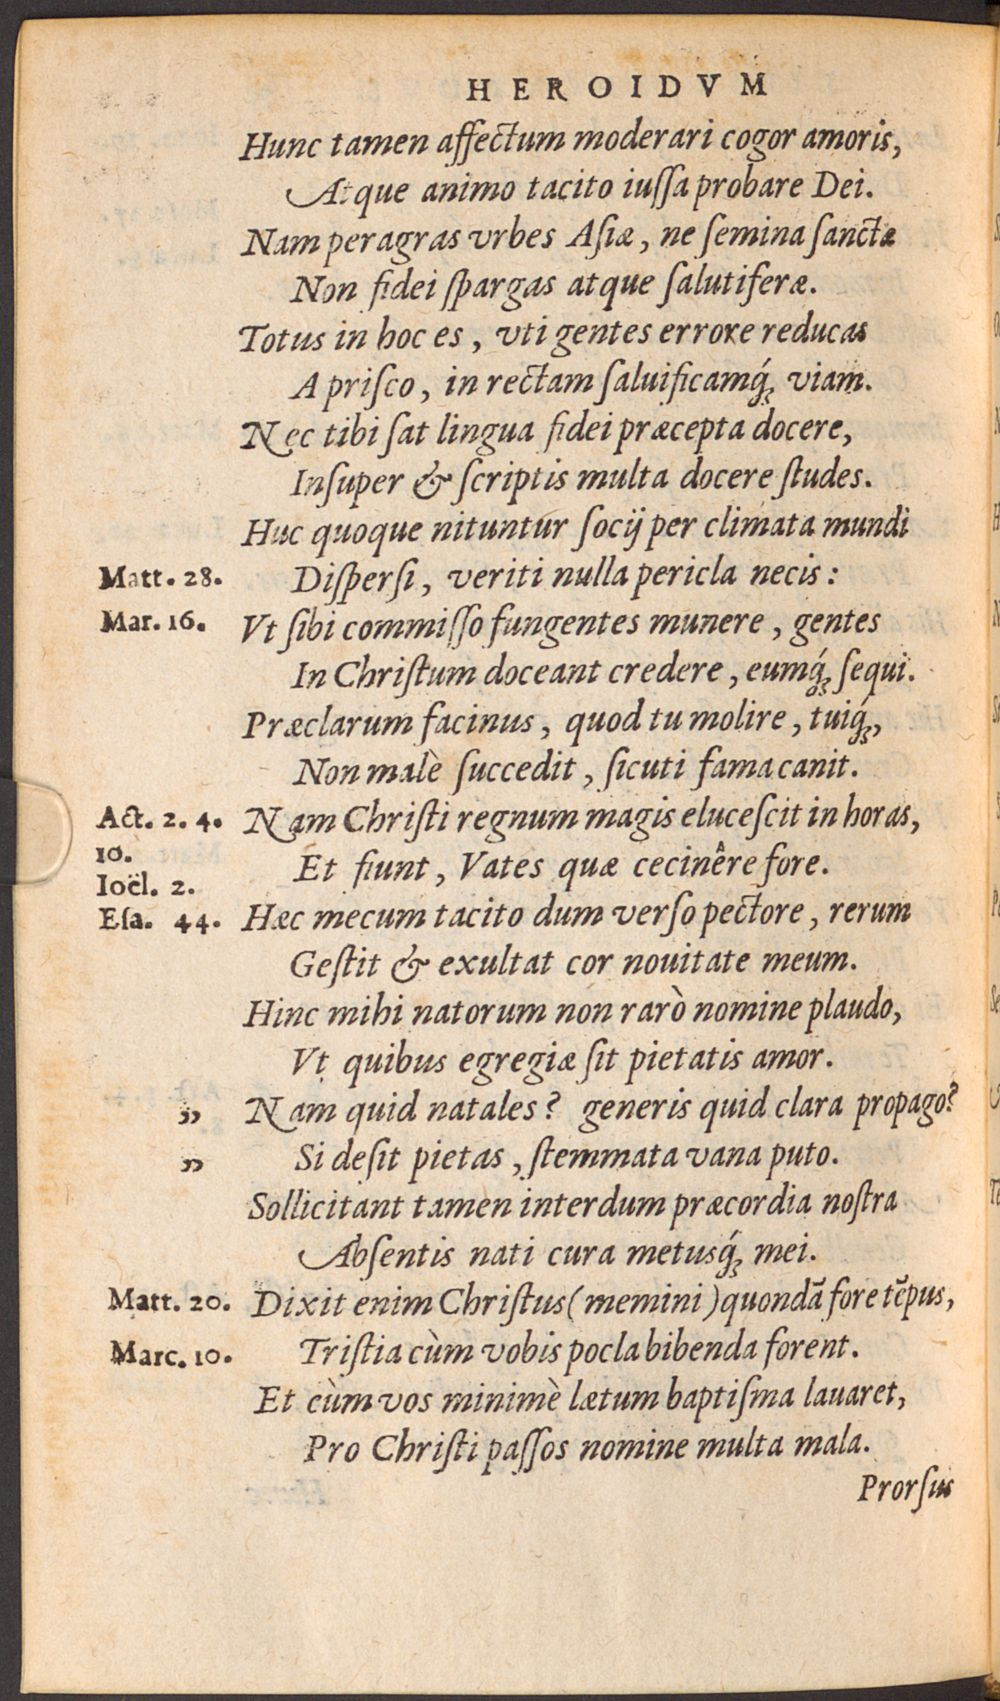 HEROIDVM
Hunc tamen affectum moderari cogor amoris,
Atque animo tacito iuſſa probare Dei.
Nam peragras vrbes Aſiæ, ne ſemina ſanctæ
Non fidei ſpargas atque ſalutiferæ.
Totus in hoc es, vti gentes errore reducas
A priſco, in rectam ſaluificamq́; viam.
Nec tibi ſat lingua fidei præcepta docere,
Inſuper & ſcriptis multa docere ſtudes.
Huc quoque nituntur ſocij per climata mundi
Matt. 28. Diſperſi, veriti nulla pericla necis:
Mar. 16. Vt ſibi commiſſo fungentes munere, gentes
In Chriſtum doceant credere, eumq́; ſequi.
Præclarum facinus, quod tu molire, tuiq́;,
Non malè ſuccedit, ſicuti fama canit.
Act. 2. 4. Nam Chriſti regnum magis eluceſcit in horas,
10. Et fiunt, Vates quæ cecinêre fore.
Ioël. 2.
Eſa. 44. Hæc mecum tacito dum verſo pectore, rerum
Geſtit & exultat cor nouitate meum.
Hinc mihi natorum non rarò nomine plaudo,
Vt quibus egregiæ ſit pietatis amor.
„ Nam quid natales? generis quid clara propago?
„ Si deſit pietas, ſtemmata vana puto.
Sollicitant tamen interdum præcordia noſtra
Abſentis nati cura metusq́; mei.
Matt. 20. Dixit enim Chriſtus (memini) quondã fore tẽpus,
Marc. 10. Triſtia cùm vobis pocla bibenda forent.
Et cùm vos minimè lætum baptiſma lauaret,
Pro Chriſti paſſos nomine multa mala.
Prorſus